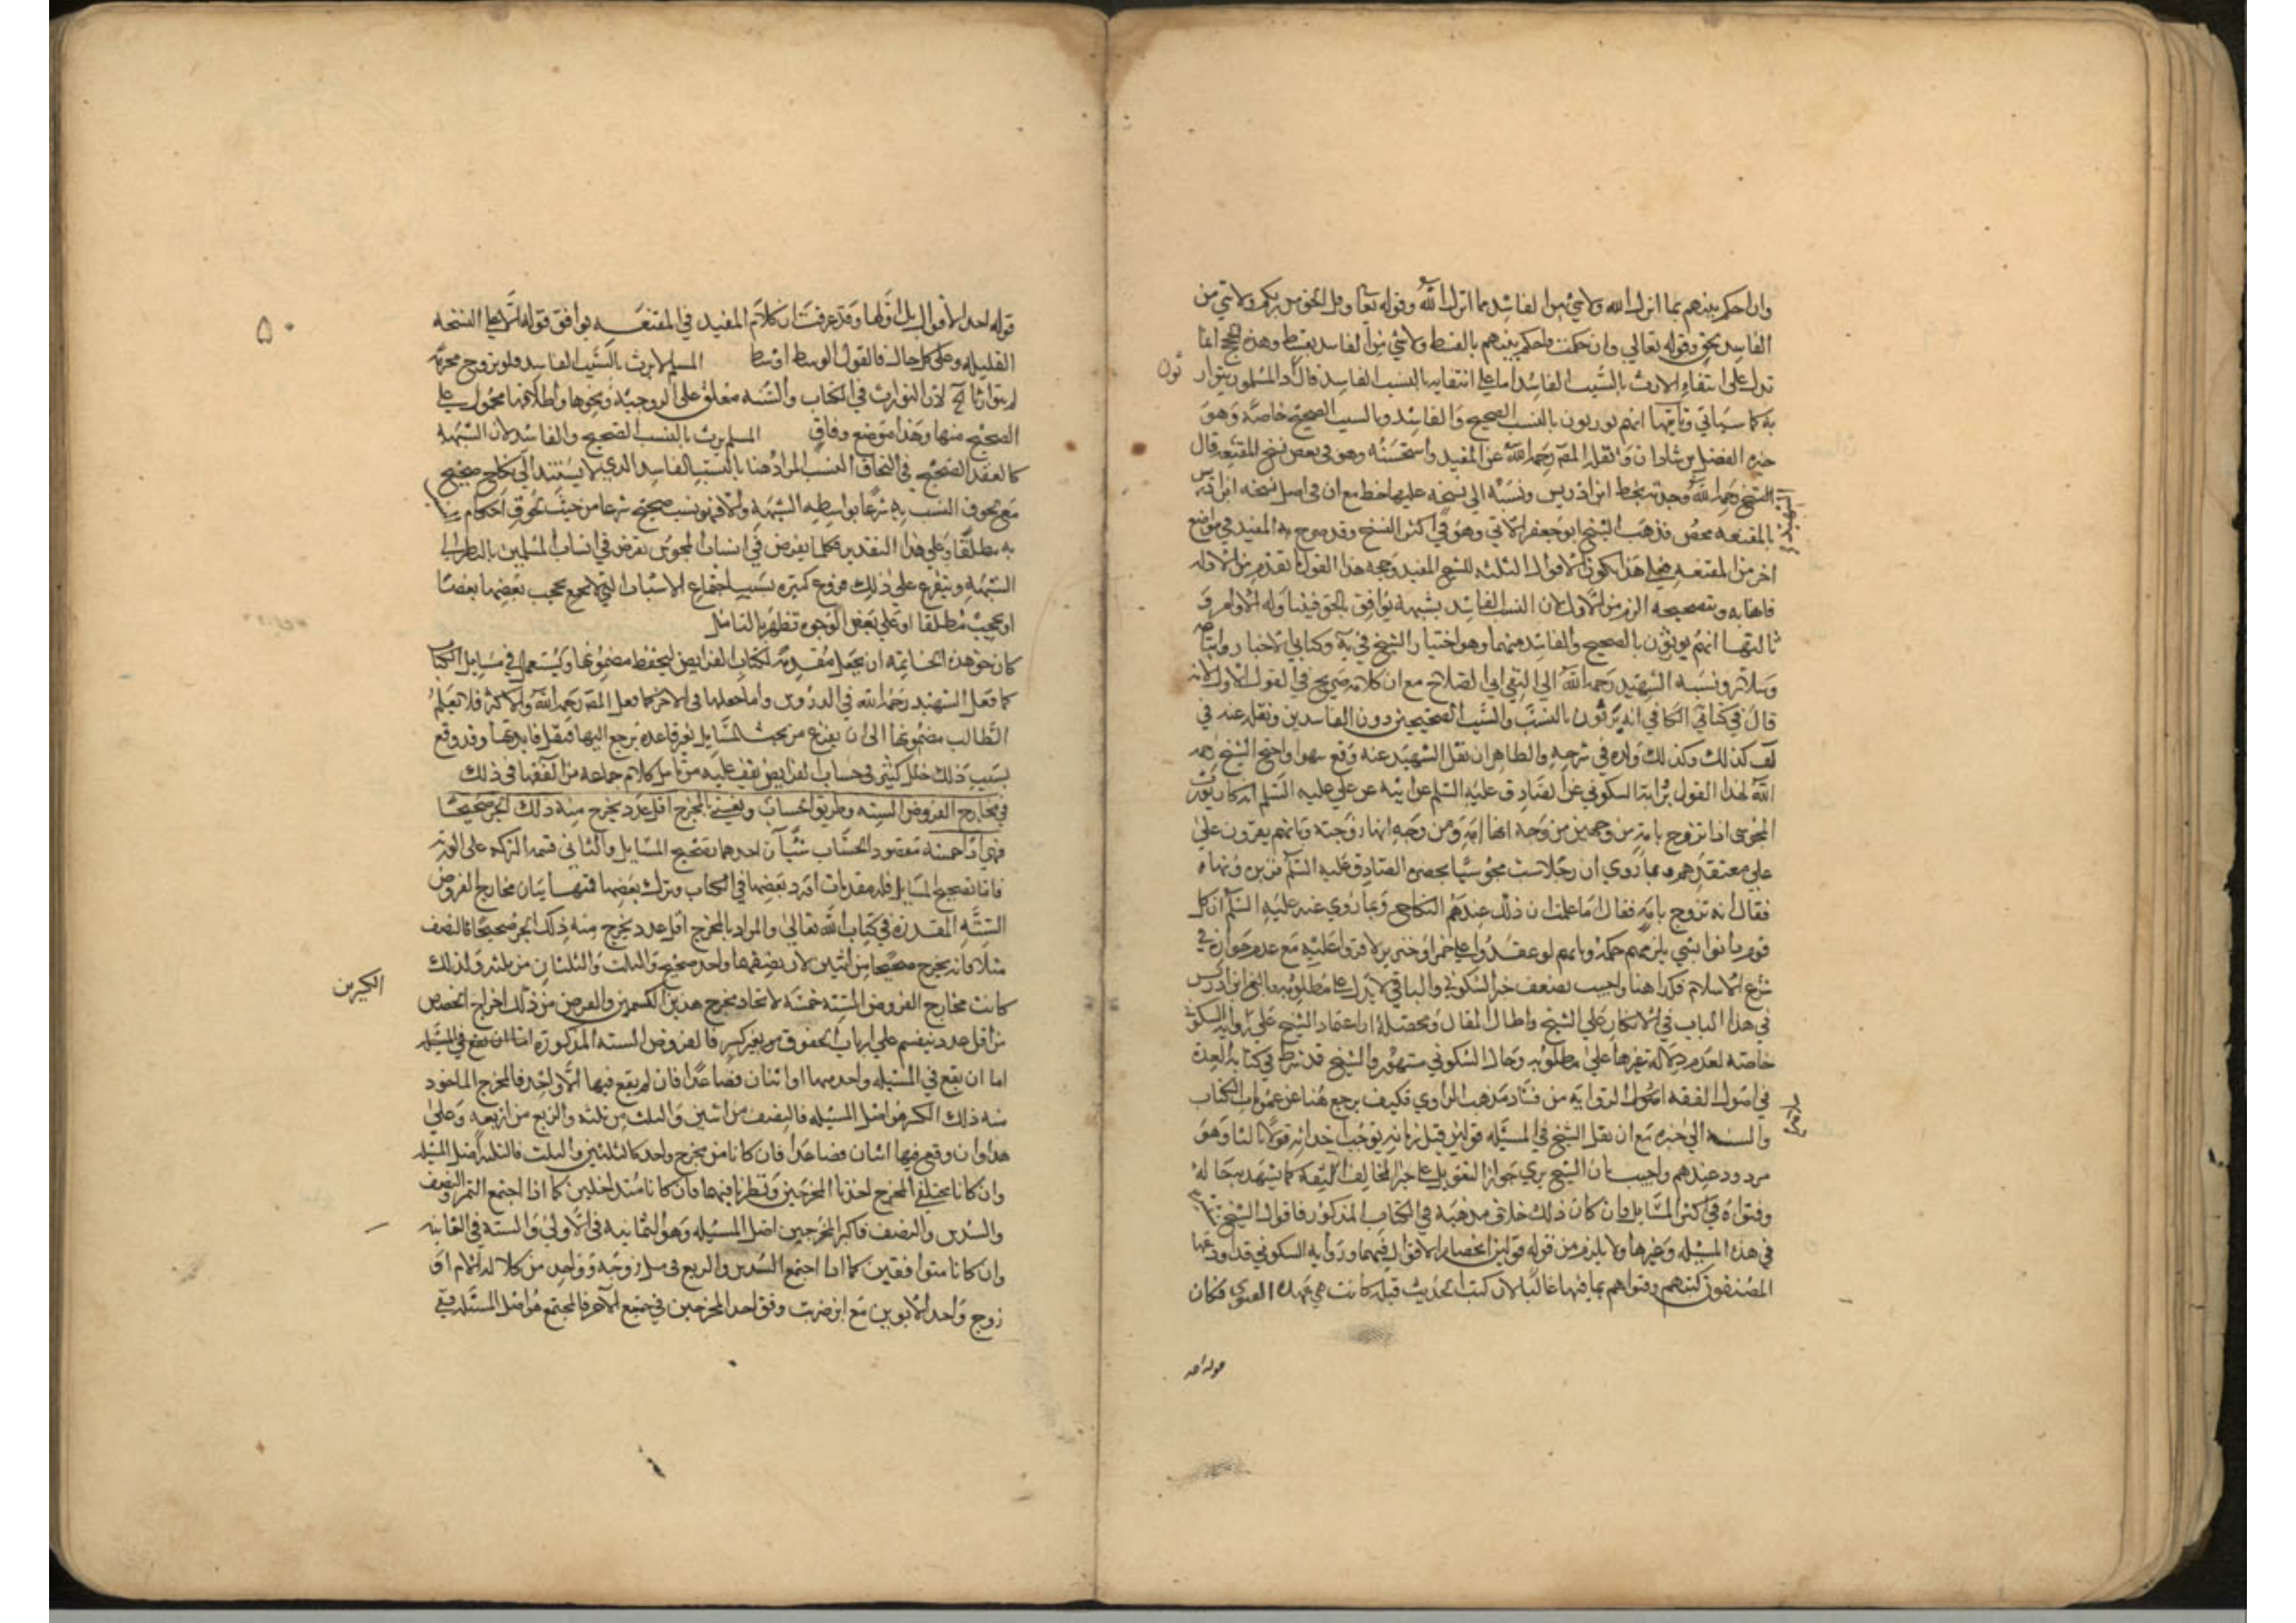 وان احكم بينهم بما انزل الله ولا شيء من الفاسد مما انزل الله وقوله تعالى وقل الحق من ربكم ولا شيء من
الفاسد بحق وقوله تعالي وان حكمت فاحكم بينهم بالقسط ولا شيء من الفاسد بقسط وهذه الحجج انما
تدل على انتفاء الارث بالسبب الفاسد اما على انتفائه بالنسب الفاسد فلا اذ المسلمون يتوارثون
به كما سياتي وثانيها انهم يورثون بالنسب الصحيح والفاسد وبالسبب الصحيح خاصة وهو
خيره الفضل بن شاذان ونقله المصنف رحمه الله عن المفيد واستحسنه وهو في بعض نسخ المقنعه قال
الشيخ رحمه الله وجدته بخط ابن ادريس ونسبه الي نسخه عليها خط مع ان في اصل نسخه ابن ادريس
بالمقنعه محض مذهب الشيخ ابو جعفر الاتي وهو في اكثر النسخ وقد صرح به المفيد في مواضع
اخر من المقنعه فعلي هذا يكون الاقوال الثلثه للشيخ المفيد وحجه هذا القول ما تقدم من الادله
فانها به وبتصحيحه الزم من الاول لان النسب الفاسد بشبهه يوافق الحق فيتناوله الاوامر و
ثالثها انهم يورثون بالصحيح والفاسد منهما وهو اختيار الشيخ في يه وكتابي الاخبار
وسلار ونسبه الشهيد رحمه الله الي التقي ابي الصلاح مع ان كلامه صريح في القول الاول لانه
قال في كتابي الكافي انه يرثون بالنسب والسبب الصحيحين دون الفاسدين ونقله عنه في
لف كذلك وكذلك ولده في شرحه والظاهر ان نقل الشهيد عنه وقع سهوا واحتج الشيخ رحمه
الله لهذا القول برواية السكوني عن الصادق عليه السلم عن ابيه عن علي عليه السلم انه كان يورث
المجوسى اذا تزوج بامه من وجهين من وجه انها امه ومن وجه انها زوجته وبانهم يقرون على
على معتقدهم وبما روي ان رجلا سب مجوسيا بحضره الصادق عليه السلم فزبره ونهاه
فقال انه تزوج بامه فقال اما علمت ان ذلك عندهم النكاح وبما روي عنه عليه السلم ان كل
قوم دانوا بشي يلزمهم حكمه وبانهم لو عقدوا علي خمر او خنزير لاقروا عليه مع عدم جوازه في
شرع الاسلام فكذا هنا واجيب بضعف خبر السكوني والباقي لا يدل علي مطلوبه وبالغ ابن ادريس
في هذا الباب في الانكار علي الشيخ واطال المقال ومحصله ان اعتماد الشيخ علي روايه السكوني
خاصه لعدم دلاله غيرها علي مطلوبه وحال السكوني مشهور والشيخ قد شرط في كتابه العدة
في اصول الفقه قبول الروايه من فساد مذهب الراوي فكيف يرجع هنا عن عمومات الكتاب
والسنه الي خبره مع ان نقل الشيخ في المسئله قولين قبل زمانه يوجب احداثه قولا ثالثا وهو
مردود عندهم واجيب بان الشيخ يري جواز التعويل علي خبر المخالف الثقه كما يشهد به حاله
وفتواه في اكثر المسايل وان كان ذلك خلاف مذهبه في الكتاب المذكور فاقوال الشيخ
في هذه المسئله وغيرها ولا يلزم من قوله قولين انحصار الاقوال فيهما وروايه السكوني قد اودعها
المصنفون كتبهم وفتواهم بما فيها غالبا لان كتب الحديث قبله كانت هي عمدة الفتوي فكان
قوله احد
نون
الشهيد
٥٠
قوله احد الاقوال بل اولها وقد عرفت ان كلام المفيد في المقنعه يوافق قوله الا علي النسخه
القليله وعلى كل حال فالقول الوسط اوسط المسلم لا يرث بالسبب الفاسد فلو تزوج محرمه
لم يتوارثا الخ لان التوارث في الكتاب والسنه معلق على الزوجيه ونحوها واطلاقها محمول على
الصحيح منها وهذا موضع وفاق المسلم يرث بالنسب الصحيح والفاسد لان الشبهه
كالعقد الصحيح في التحاق النسب المراد هنا بالنسب الفاسد الذي لا يستند الي نكاح صحيح
مع لحوق النسب به شرعا بواسطه الشبهه والا فهو نسب صحيح شرعا من حيث لحوق احكام
به مطلقا وعلي هذا التقدير فكلما يفرض في انساب المجوس يفرض في انساب المسلمين بالنظر الي
الشبهه ويتفرع علي ذلك فروع كثيره بسبب اجتماع الاسباب التي لا يحجب بعضها بعضا
او يحجب مطلقا او علي بعض الوجوه تظهر بالتامل
كان حق هذه الخاتمه ان يجعل مقدمة لكتاب الفرايض ليحفظ مضمونها ويستعمل في مسايل الكتاب
كما فعل الشهيد رحمه الله في الدروس واما جعلها في الاخر كما فعل المصنف رحمه الله والاكثر فلا تعلم
الطالب مضمونها الى ان يفرغ من بحث المسايل بغير قاعده يرجع اليها فتقل فايدتها وقد وقع
بسبب ذلك خلل كثير في حساب الفرايض يقف عليه من تامل كلام جماعه من الفقها في ذلك
في مخارج الفروض السته وطريق الحساب ونعني بالمخرج اقل عدد يخرج منه ذلك الجزء صحيحا
فهي اذا خمسه مقصود الحساب شيآن احدهما تصحيح المسايل والثاني قسمة التركه على الورثه
فاما تصحيح المسايل فله مقدمات افرد بعضها في الكتاب وترك بعضها فمنها بيان مخارج الفروض
الستة المقدره في كتاب الله تعالى والمراد بالمخرج اقل عدد يخرج منه ذلك الجزء صحيحا كالنصف
مثلا فانه يخرج صحيحا من اثنين لان نصفهما واحد صحيح والثلث والثلثان من ثلثه ولذلك
كانت مخارج الفروض السته خمسه لاتحاد مخرج هذين الكسرين والغرض من ذلك اخراج الحصص
من اقل عدد ينقسم علي ارباب الحقوق من غير كسر فالفروض السته المذكورة اما ان يقع في المسئله
اما ان يقع في المسئله واحد منها او اثنان فصاعدا فان لم يقع فيها الا واحد فالمخرج الماخوذ
منه ذلك الكسر هو اصل المسئله فالنصف من اثنين والثلث من ثلثه والربع من اربعه وعلي
هذا وان وقع فيها اثنان فصاعدا فان كانا من مخرج واحد كالثلثين والثلث فالثلثه اصل المسئله
وان كانا مختلفي المخرج اخذنا المخرجين ونظرنا فيهما فان كانا متداخلين كما اذا اجتمع الثمن والنصف
والسدس والنصف فاكبر المخرجين اصل المسئله وهو الثمانيه في الاولي والسته في الثانيه
وان كانا متوافقين كما اذا اجتمع السدس والربع في مثل زوجة وواحد من كلاله الام او
زوج واحد الابوين مع ابن ضربت وفق احد المخرجين في جميع الاخر فالمجتمع هو اصل المسئله ففي
الكسرين